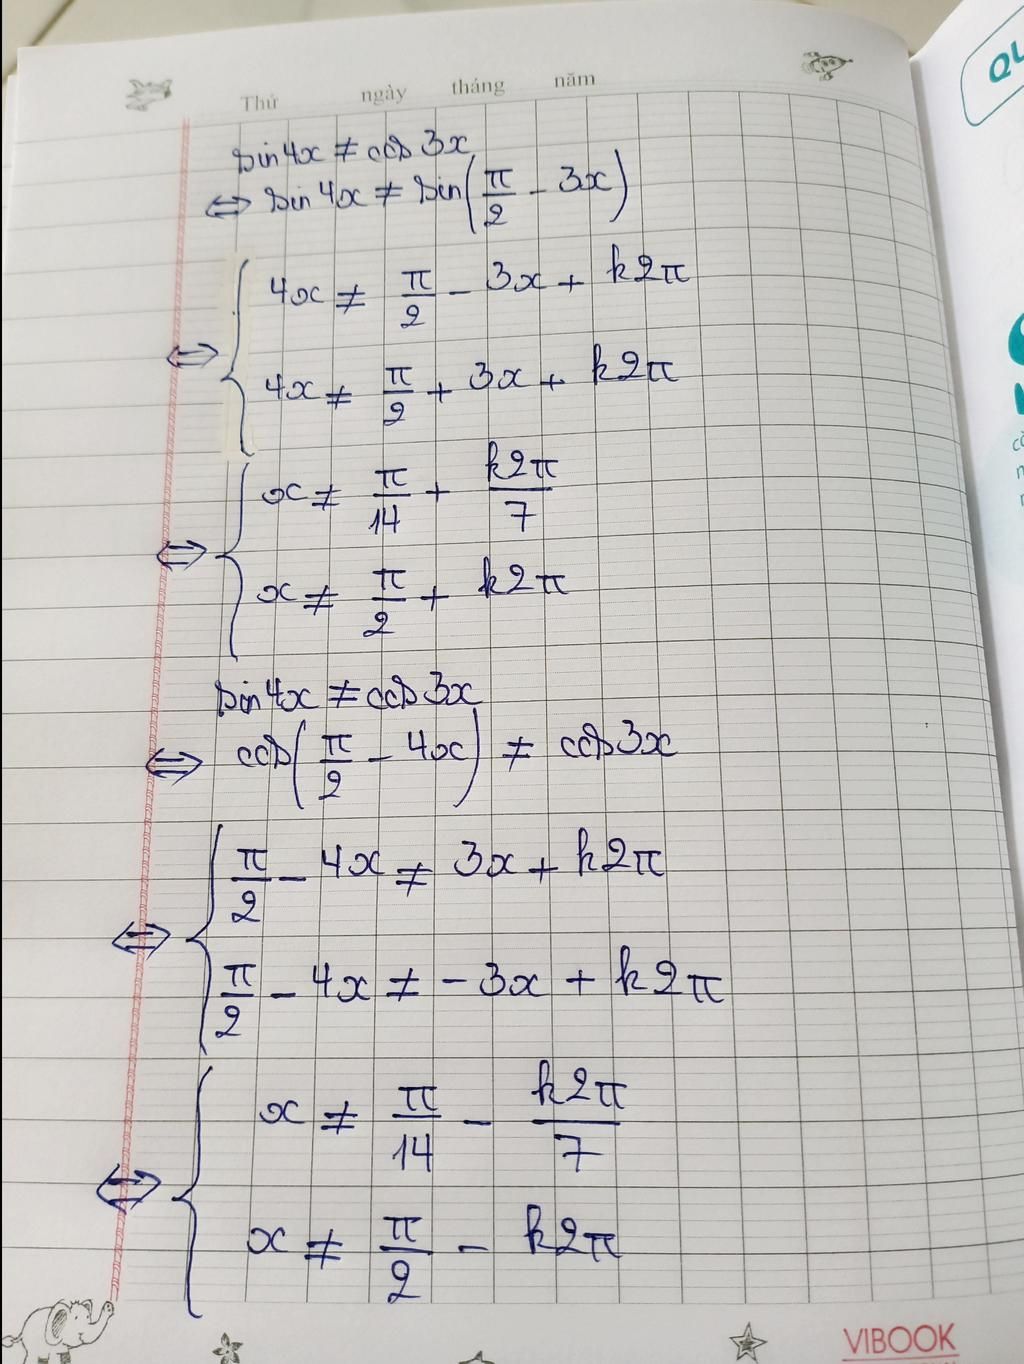 Thứ ngày tháng năm
sin4x ≠ cos3x
⇔ sin4x ≠ sin(π/2 - 3x)
⇔ { 4x ≠ π/2 - 3x + k2π
4x ≠ π/2 + 3x + k2π
⇔ { x ≠ π/14 + k2π/7
x ≠ π/2 + k2π
sin4x ≠ cos3x
⇔ cos(π/2 - 4x) ≠ cos3x
⇔ { π/2 - 4x ≠ 3x + k2π
π/2 - 4x ≠ -3x + k2π
⇔ { x ≠ π/14 - k2π/7
x ≠ π/2 - k2π
VIBOOK